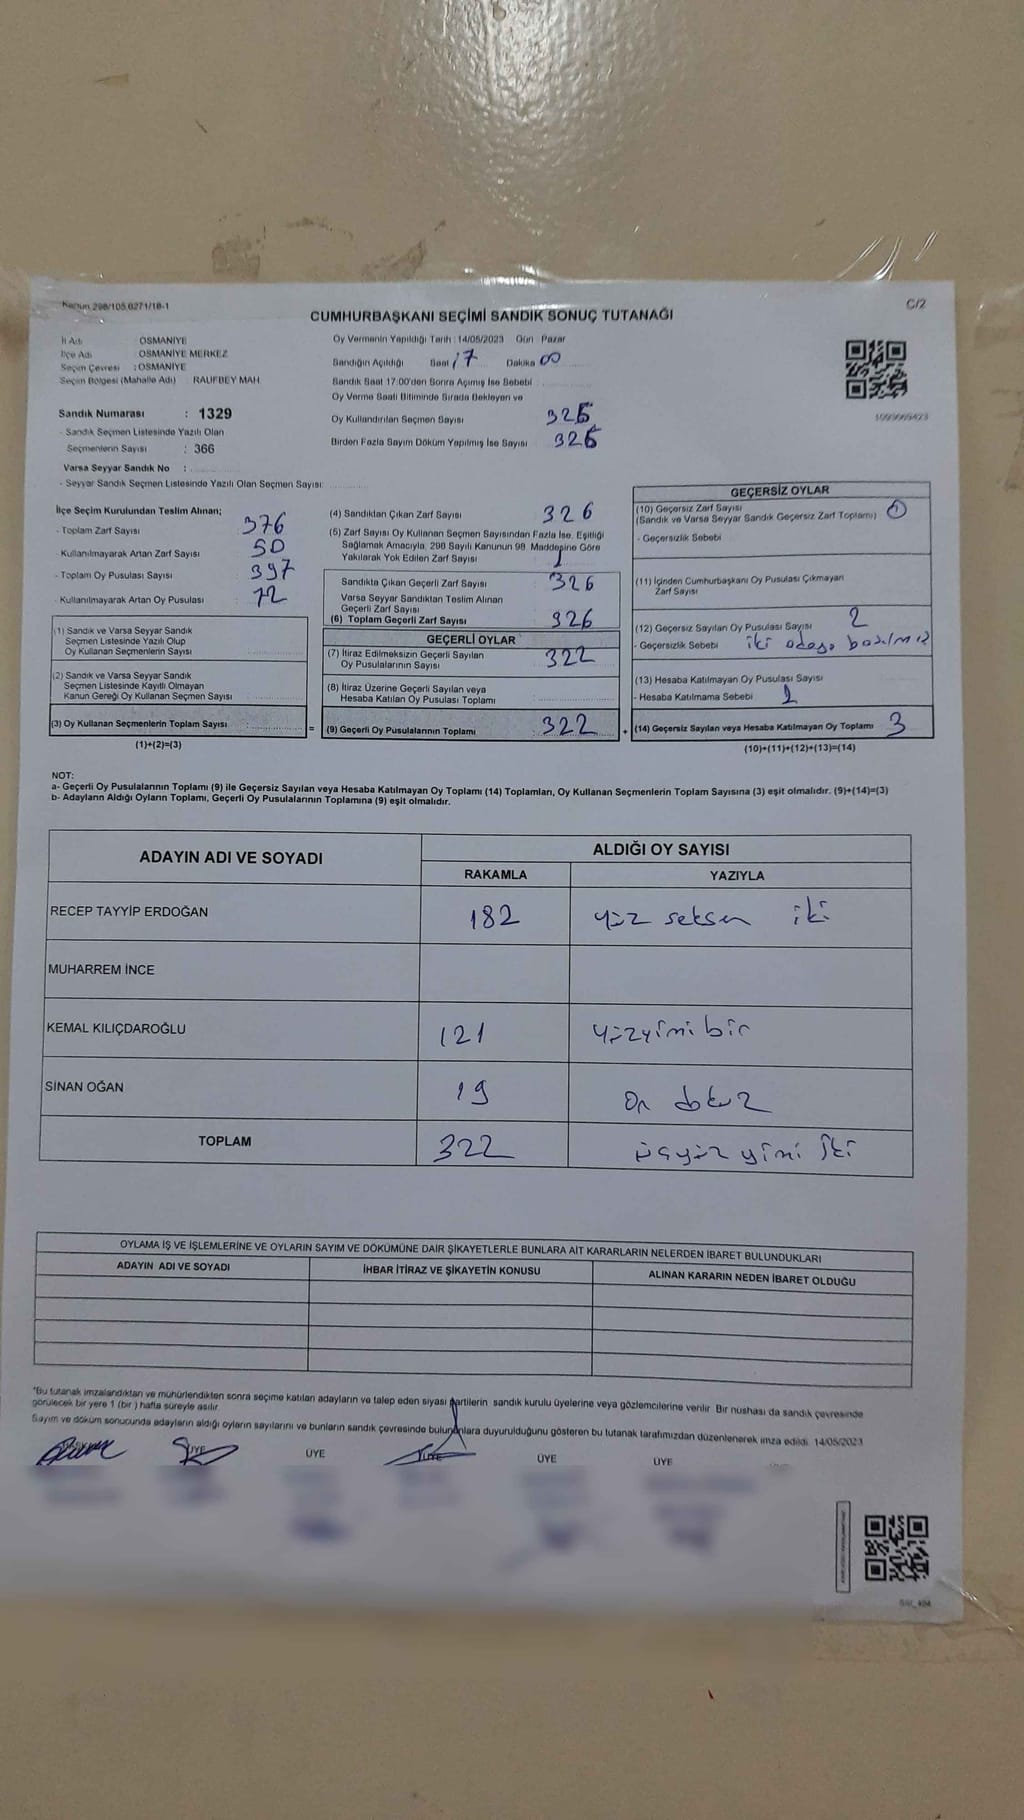 Kanun 298/105,6271/18-1
C/2
CUMHURBAŞKANI SEÇİMİ SANDIK SONUÇ TUTANAĞI
İl Adı OSMANİYE
İlçe Adı OSMANİYE MERKEZ
Seçim Çevresi : OSMANİYE
Seçim Bölgesi (Mahalle Adı) RAUFBEY MAH
Sandık Numarası : 1329
- Sandık Seçmen Listesinde Yazılı Olan
Seçmenlerin Sayısı : 366
Varsa Seyyar Sandık No :
- Seyyar Sandık Seçmen Listesinde Yazılı Olan Seçmen Sayısı:
Oy Vermenin Yapıldığı Tarih : 14/05/2023 Gün Pazar
Sandığın Açıldığı Saat 17 Dakika 00
Sandık Saat 17.00'den Sonra Açımış İse Sebebi
Oy Verme Saati Bitiminde Sırada Bekleyen ve
Oy Kullandırılan Seçmen Sayısı 326
Birden Fazla Sayım Döküm Yapılmış İse Sayısı 326
1093665423
İlçe Seçim Kurulundan Teslim Alınan;
- Toplam Zarf Sayısı 376
- Kullanılmayarak Artan Zarf Sayısı 50
- Toplam Oy Pusulası Sayısı 397
- Kullanılmayarak Artan Oy Pusulası 72
(1) Sandık ve Varsa Seyyar Sandık
Seçmen Listesinde Yazılı Olup
Oy Kullanan Seçmenlerin Sayısı
(2) Sandık ve Varsa Seyyar Sandık
Seçmen Listesinde Kayıtlı Olmayan
Kanun Gereği Oy Kullanan Seçmen Sayısı
(3) Oy Kullanan Seçmenlerin Toplam Sayısı
(1)+(2)=(3)
=
(4) Sandıktan Çıkan Zarf Sayısı 326
(5) Zarf Sayısı Oy Kullanan Seçmen Sayısından Fazla İse, Eşitliği
Sağlamak Amacıyla, 298 Sayılı Kanunun 98. Maddesine Göre
Yakılarak Yok Edilen Zarf Sayısı 1
Sandıkta Çıkan Geçerli Zarf Sayısı 326
Varsa Seyyar Sandıktan Teslim Alınan
Geçerli Zarf Sayısı
(6) Toplam Geçerli Zarf Sayısı 326
GEÇERLİ OYLAR
(7) İtiraz Edilmeksizin Geçerli Sayılan
Oy Pusulalarının Sayısı 322
(8) İtiraz Üzerine Geçerli Sayılan veya
Hesaba Katılan Oy Pusulası Toplamı
(9) Geçerli Oy Pusulalarının Toplamı 322
+
GEÇERSİZ OYLAR
(10) Geçersiz Zarf Sayısı
(Sandık ve Varsa Seyyar Sandık Geçersiz Zarf Toplamı) 1
- Geçersizlik Sebebi
(11) İçinden Cumhurbaşkanı Oy Pusulası Çıkmayan
Zarf Sayısı
(12) Geçersiz Sayılan Oy Pusulası Sayısı 2
- Geçersizlik Sebebi iki adaya basılmış
(13) Hesaba Katılmayan Oy Pusulası Sayısı
- Hesaba Katılmama Sebebi 1
(14) Geçersiz Sayılan veya Hesaba Katılmayan Oy Toplamı 3
(10)+(11)+(12)+(13)=(14)
NOT:
a- Geçerli Oy Pusulalarının Toplamı (9) ile Geçersiz Sayılan veya Hesaba Katılmayan Oy Toplamı (14) Toplamları, Oy Kullanan Seçmenlerin Toplam Sayısına (3) eşit olmalıdır. (9)+(14)=(3)
b- Adayların Aldığı Oyların Toplamı, Geçerli Oy Pusulalarının Toplamına (9) eşit olmalıdır.
ADAYIN ADI VE SOYADI ALDIĞI OY SAYISI
RAKAMLA YAZIYLA
RECEP TAYYİP ERDOĞAN 182 yüz seksen iki
MUHARREM İNCE
KEMAL KILIÇDAROĞLU 121 yüzyimi bir
SİNAN OĞAN 19 On dokuz
TOPLAM 322 üçyüz yimi iki
OYLAMA İŞ VE İŞLEMLERİNE VE OYLARIN SAYIM VE DÖKÜMÜNE DAİR ŞİKAYETLERLE BUNLARA AİT KARARLARIN NELERDEN İBARET BULUNDUKLARI
ADAYIN ADI VE SOYADI İHBAR İTİRAZ VE ŞİKAYETİN KONUSU ALINAN KARARIN NEDEN İBARET OLDUĞU
*Bu tutanak imzalandıktan ve mühürlendikten sonra seçime katılan adayların ve talep eden siyasi partilerin sandık kurulu üyelerine veya gözlemcilerine verilir. Bir nüshası da sandık çevresinde
görülecek bir yere 1 (bir ) hafta süreyle asılır.
Sayım ve döküm sonucunda adayların aldığı oyların sayılarını ve bunların sandık çevresinde bulunanlara duyurulduğunu gösteren bu tutanak tarafımızdan düzenlenerek imza edildi. 14/05/2023
ÜYE ÜYE ÜYE ÜYE ÜYE